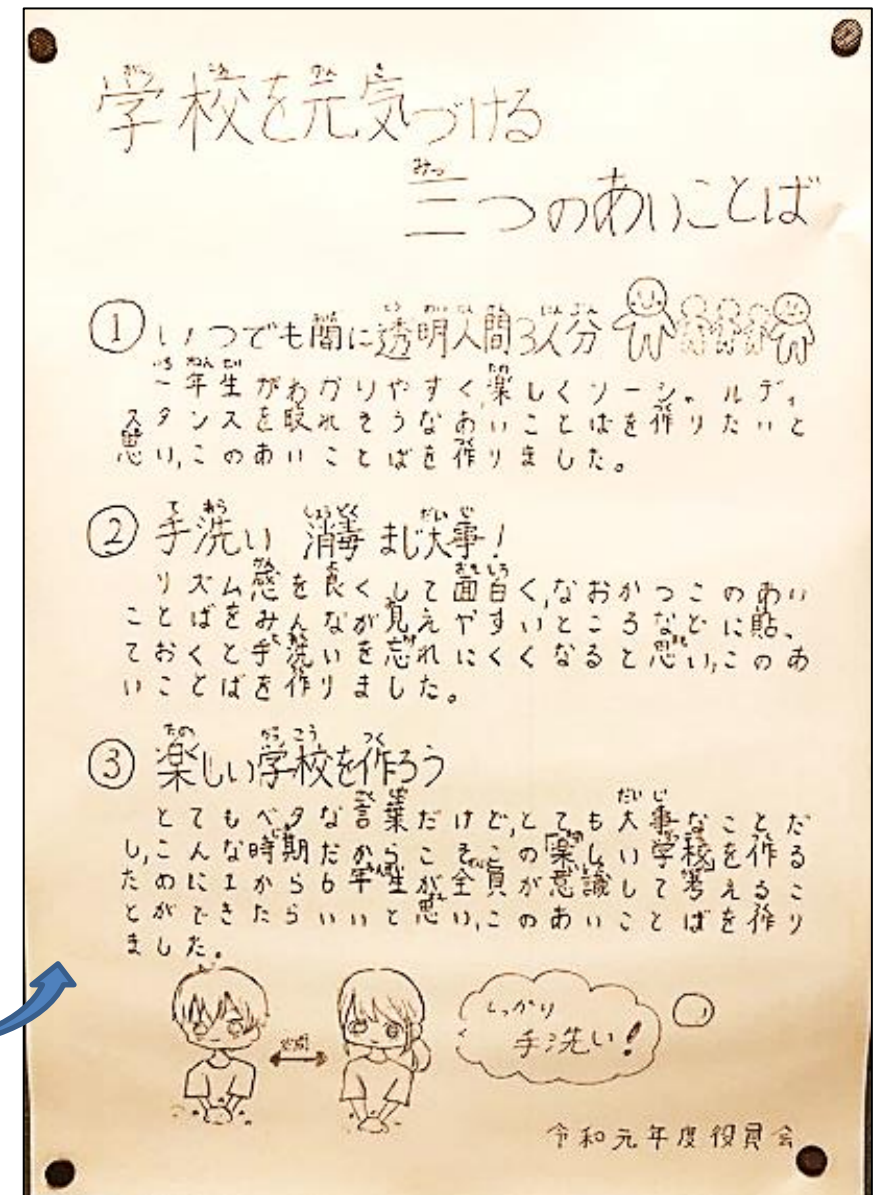 学校を元気づける
三つのあいことば
① いつでも間に透明人間3人分
一年生がわかりやすく、楽しくソーシャルディ
スタンスを取れそうなあいことばを作りたいと
思い、このあいことばを作りました。
② 手洗い 消毒 まじ大事!
リズム感を良くして面白く、なおかつこのあい
ことばをみんなが見えやすいところなどに貼っ
ておくと手洗いを忘れにくくなると思い、このあ
いことばを作りました。
③ 楽しい学校を作ろう
とてもベタな言葉だけど、とても大事なことだ
し、こんな時期だからこそ、この「楽しい学校」を作る
ために1から6年生が全員が意識して考えるこ
とができたらいいと思い、このあいことばを作り
ました。
空間
しっかり
手洗い!
令和元年度役員会